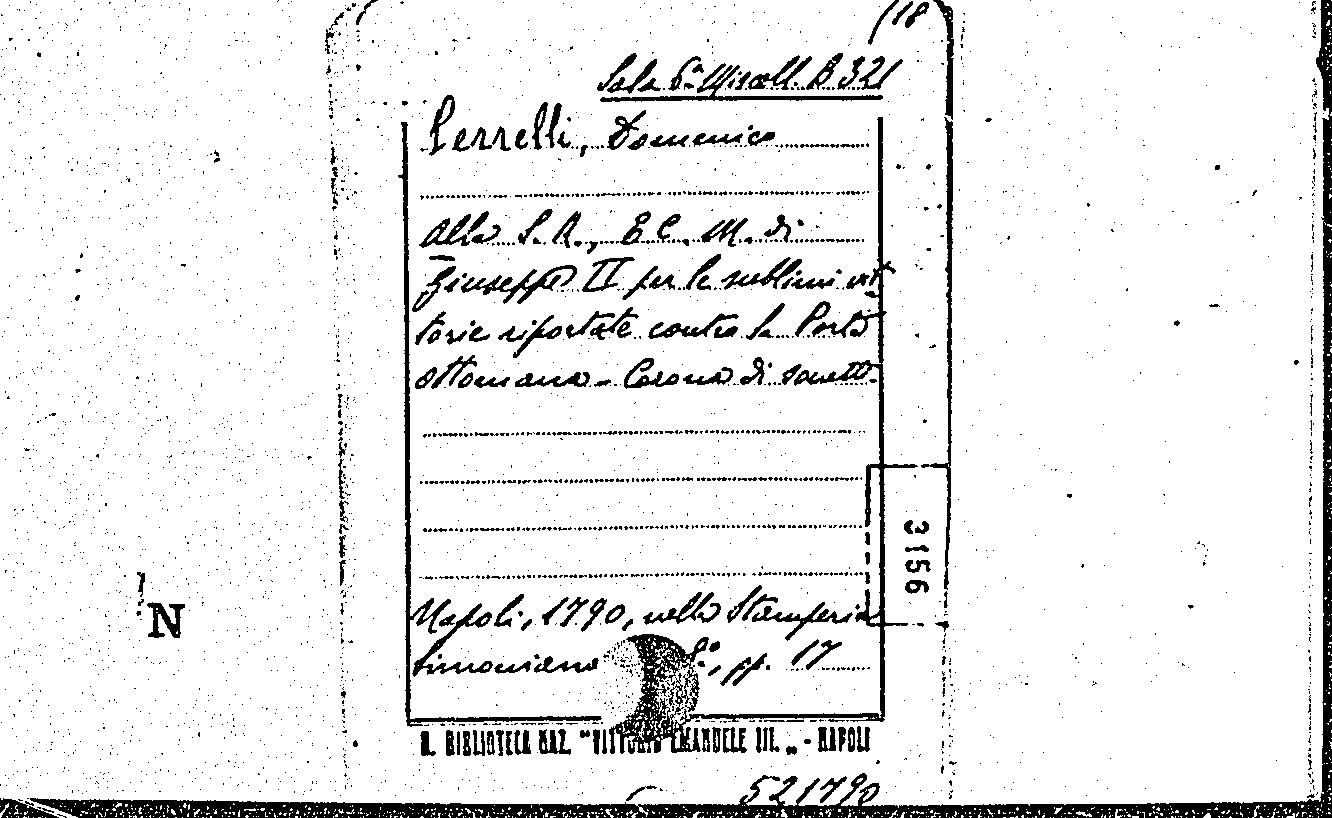 (18
Sala 6ª Miscell. B 321
Perrelli, Domenico
Alla S. R., E C. M. di
Giuseppe II per le sublimi vit-
torie riportate contro la Porta
ottomana - Corona di sonetti.
Napoli, 1790, nella Stamperia
Simoniana 8°, pp. 17
R. BIBLIOTECA NAZ. "VITTORIO EMANUELE III. „ - NAPOLI
521790
3156
N